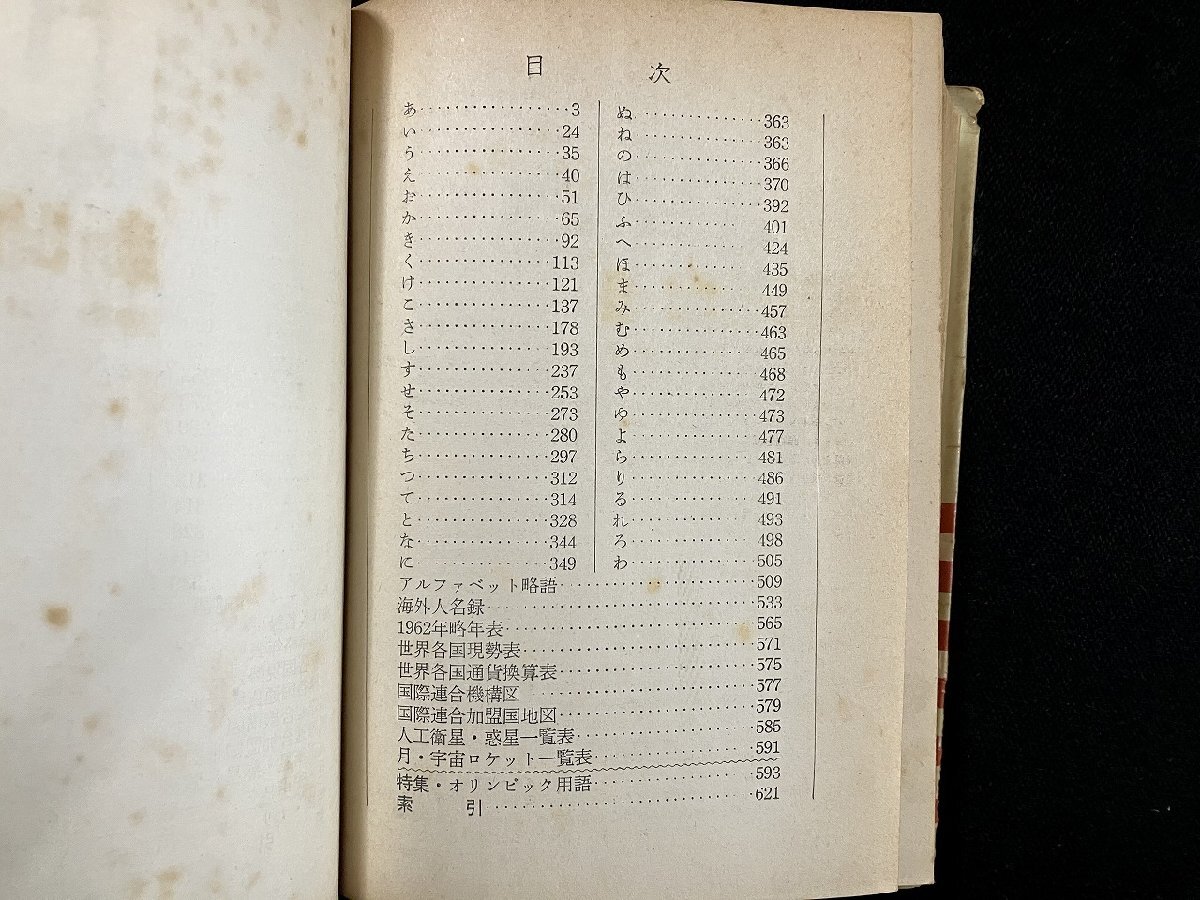 目次
あ……3
い……24
う……35
え……40
お……51
か……65
き……92
く……113
け……121
こ……137
さ……178
し……193
す……237
せ……253
そ……273
た……280
ち……297
つ……312
て……314
と……328
な……344
に……349
ぬ……363
ね……363
の……366
は……370
ひ……392
ふ……401
へ……424
ほ……435
ま……449
み……457
む……463
め……465
も……468
や……472
ゆ……473
よ……477
ら……481
り……486
る……491
れ……493
ろ……498
わ……505
アルファベット略語……509
海外人名録……533
1962年略年表……565
世界各国現勢表……571
世界各国通貨換算表……575
国際連合機構図……577
国際連合加盟国地図……579
人工衛星・惑星一覧表……585
月・宇宙ロケット一覧表……591
特集・オリンピック用語……593
索引……621